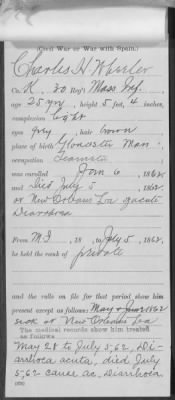 (Civil War or War with Spain.)
Charles H Wheeler
Co. K, 30 Reg't Mass Inf.
age 25 yrs, height 5 feet, 4 inches,
complexion light
eyes gry, hair brown
place of birth Gloucester Mass.
occupation Teamster
was enrolled Jan 6, 1862
and died July 5, 1862
at New Orleans La acute
Diarrhoea
From M.I., 18 , to July 5, 1862,
he held the rank of private
and the rolls on file for that period show him
present except as follows: May & June 1862
sick at New Orleans La
The medical records show him treated
as follows
May 28 to July 5, 62, Di-
arrhoea acuta, died July
5, 62 cause ac. Diarrhoea